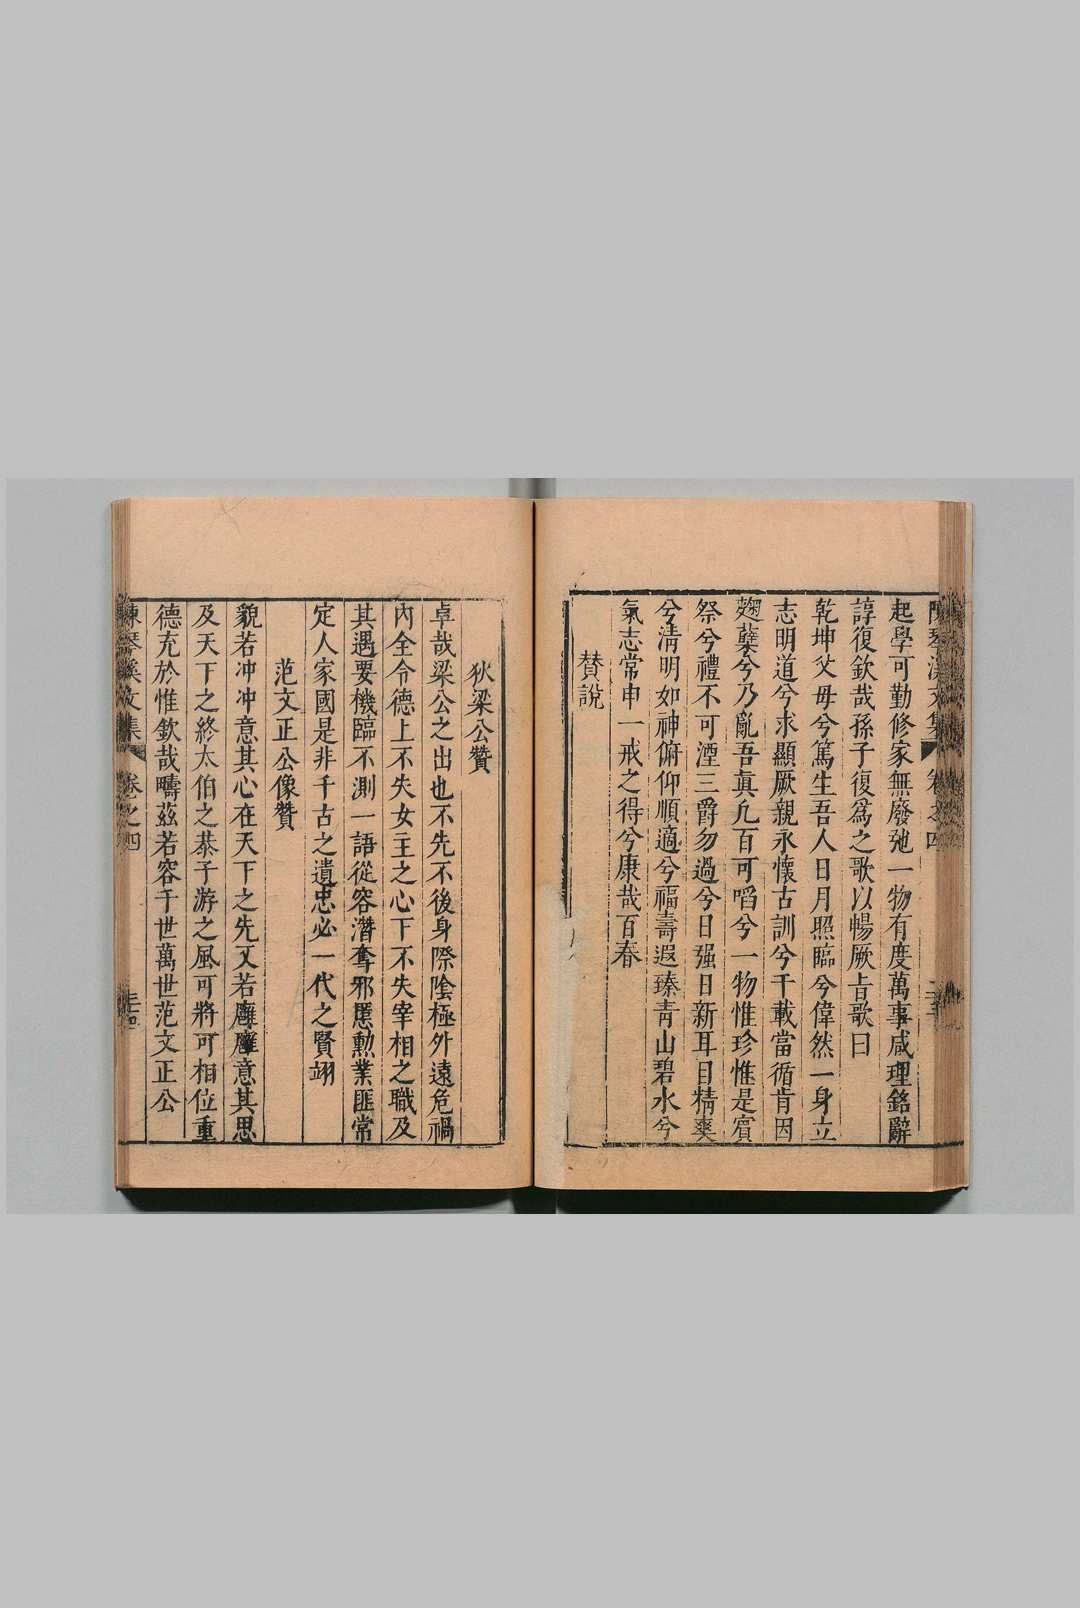 起學可勤修家無廢弛一物有度萬事咸理銘辭
諄復欽哉孫子復爲之歌以暢厥旨歌曰
乾坤父母兮篤生吾人日月照臨兮偉然一身立
志明道兮求顯厥親永懷古訓兮千載當循肯因
麴糵兮乃亂吾眞凢百可嗂兮一物惟珍惟是賔
祭兮禮不可湮三爵勿過兮日强日新耳目精爽
兮清明如神俯仰順適兮福壽遐臻青山碧水兮
氣志常申一戒之得兮康哉百春
賛說
狄梁公贊
卓哉梁公之出也不先不後身際陰極外遠危禍
內全令德上不失女主之心下不失宰相之職及
其遇要機臨不測一語從容潛奪邪慝勲業匪常
定人家國是非千古之遺忠必一代之賢翊
范文正公像贊
貌若冲冲意其心在天下之先又若廱廱意其思
及天下之終太伯之恭子游之風可將可相位重
德充於惟欽哉疇茲若容千世萬世范文正公
陳琴溪文集 卷之四